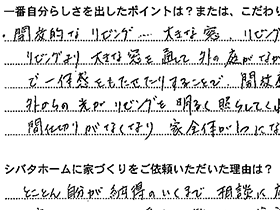 一番自分らしさを出したポイントは？または、こだわり
・開放的なリビング… 大きな窓、リビング
リビングより大きな窓を通して外の庭がなが
で一体感をもたせたりすることで、開放
外からの光がリビングを明るく照らしてく
間仕切りがなくなり 家全体が1つにな
シバタホームに家づくりをご依頼いただいた理由は？
とことん自分が納得のいくまで 相談に